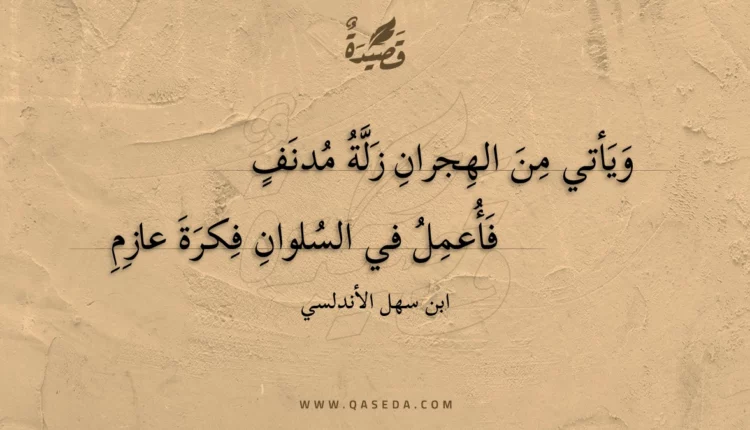 قَصِيدَةٌ
وَيَأتي مِنَ الهِجرانِ زَلَّةُ مُدنَفٍ
فَأُعمِلُ في السُلوانِ فِكرَةَ عازِمِ
ابن سهل الأندلسي
WWW.QASEDA.COM